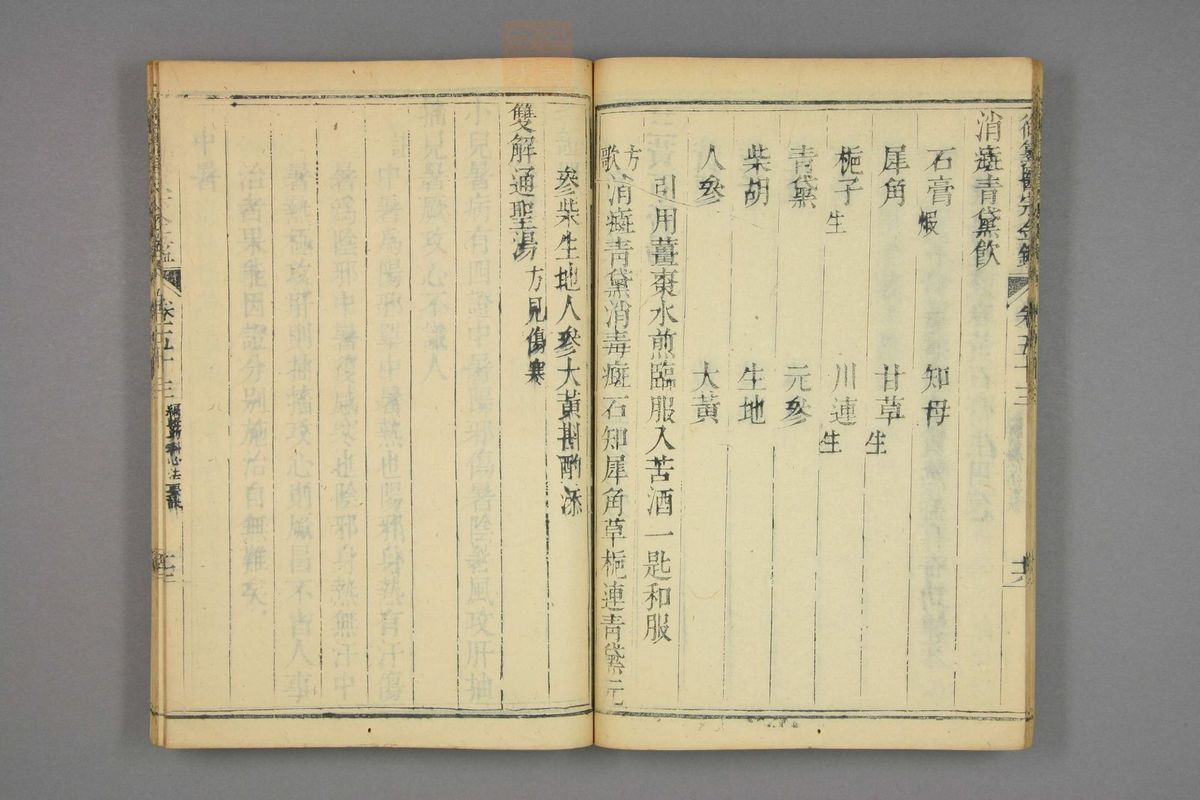 御纂醫宗金鑑
卷五十三
消癍青黛飲
石膏煅　知母
犀角　甘草生
梔子生　川連生
青黛　元參
柴胡　生地
人參　大黃
引用薑棗水煎臨服入苦酒一匙和服
方歌　消癍青黛消毒癍石知犀角草梔連青黛元
參柴生地人參大黃斟酌添
雙解通聖湯方見傷寒
卷五十三